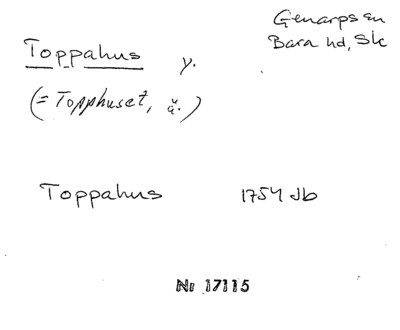 Genarps sn
Bara hd, Sk
Toppahus y.
(= Topphuset, ä.)
Toppahus 1754 Jb
Nr 17115